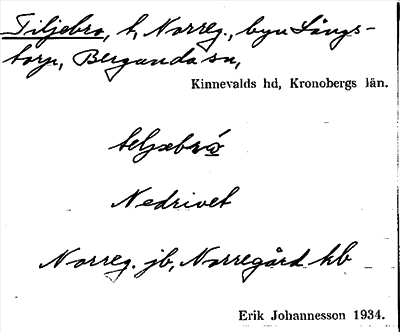 Tiljebro, t, Norreg., byn Långs-
torp, Bergunda sn,
Kinnevalds hd, Kronobergs län.
Nedrivet
Norreg. jb, Norregård hb
Erik Johannesson 1934.